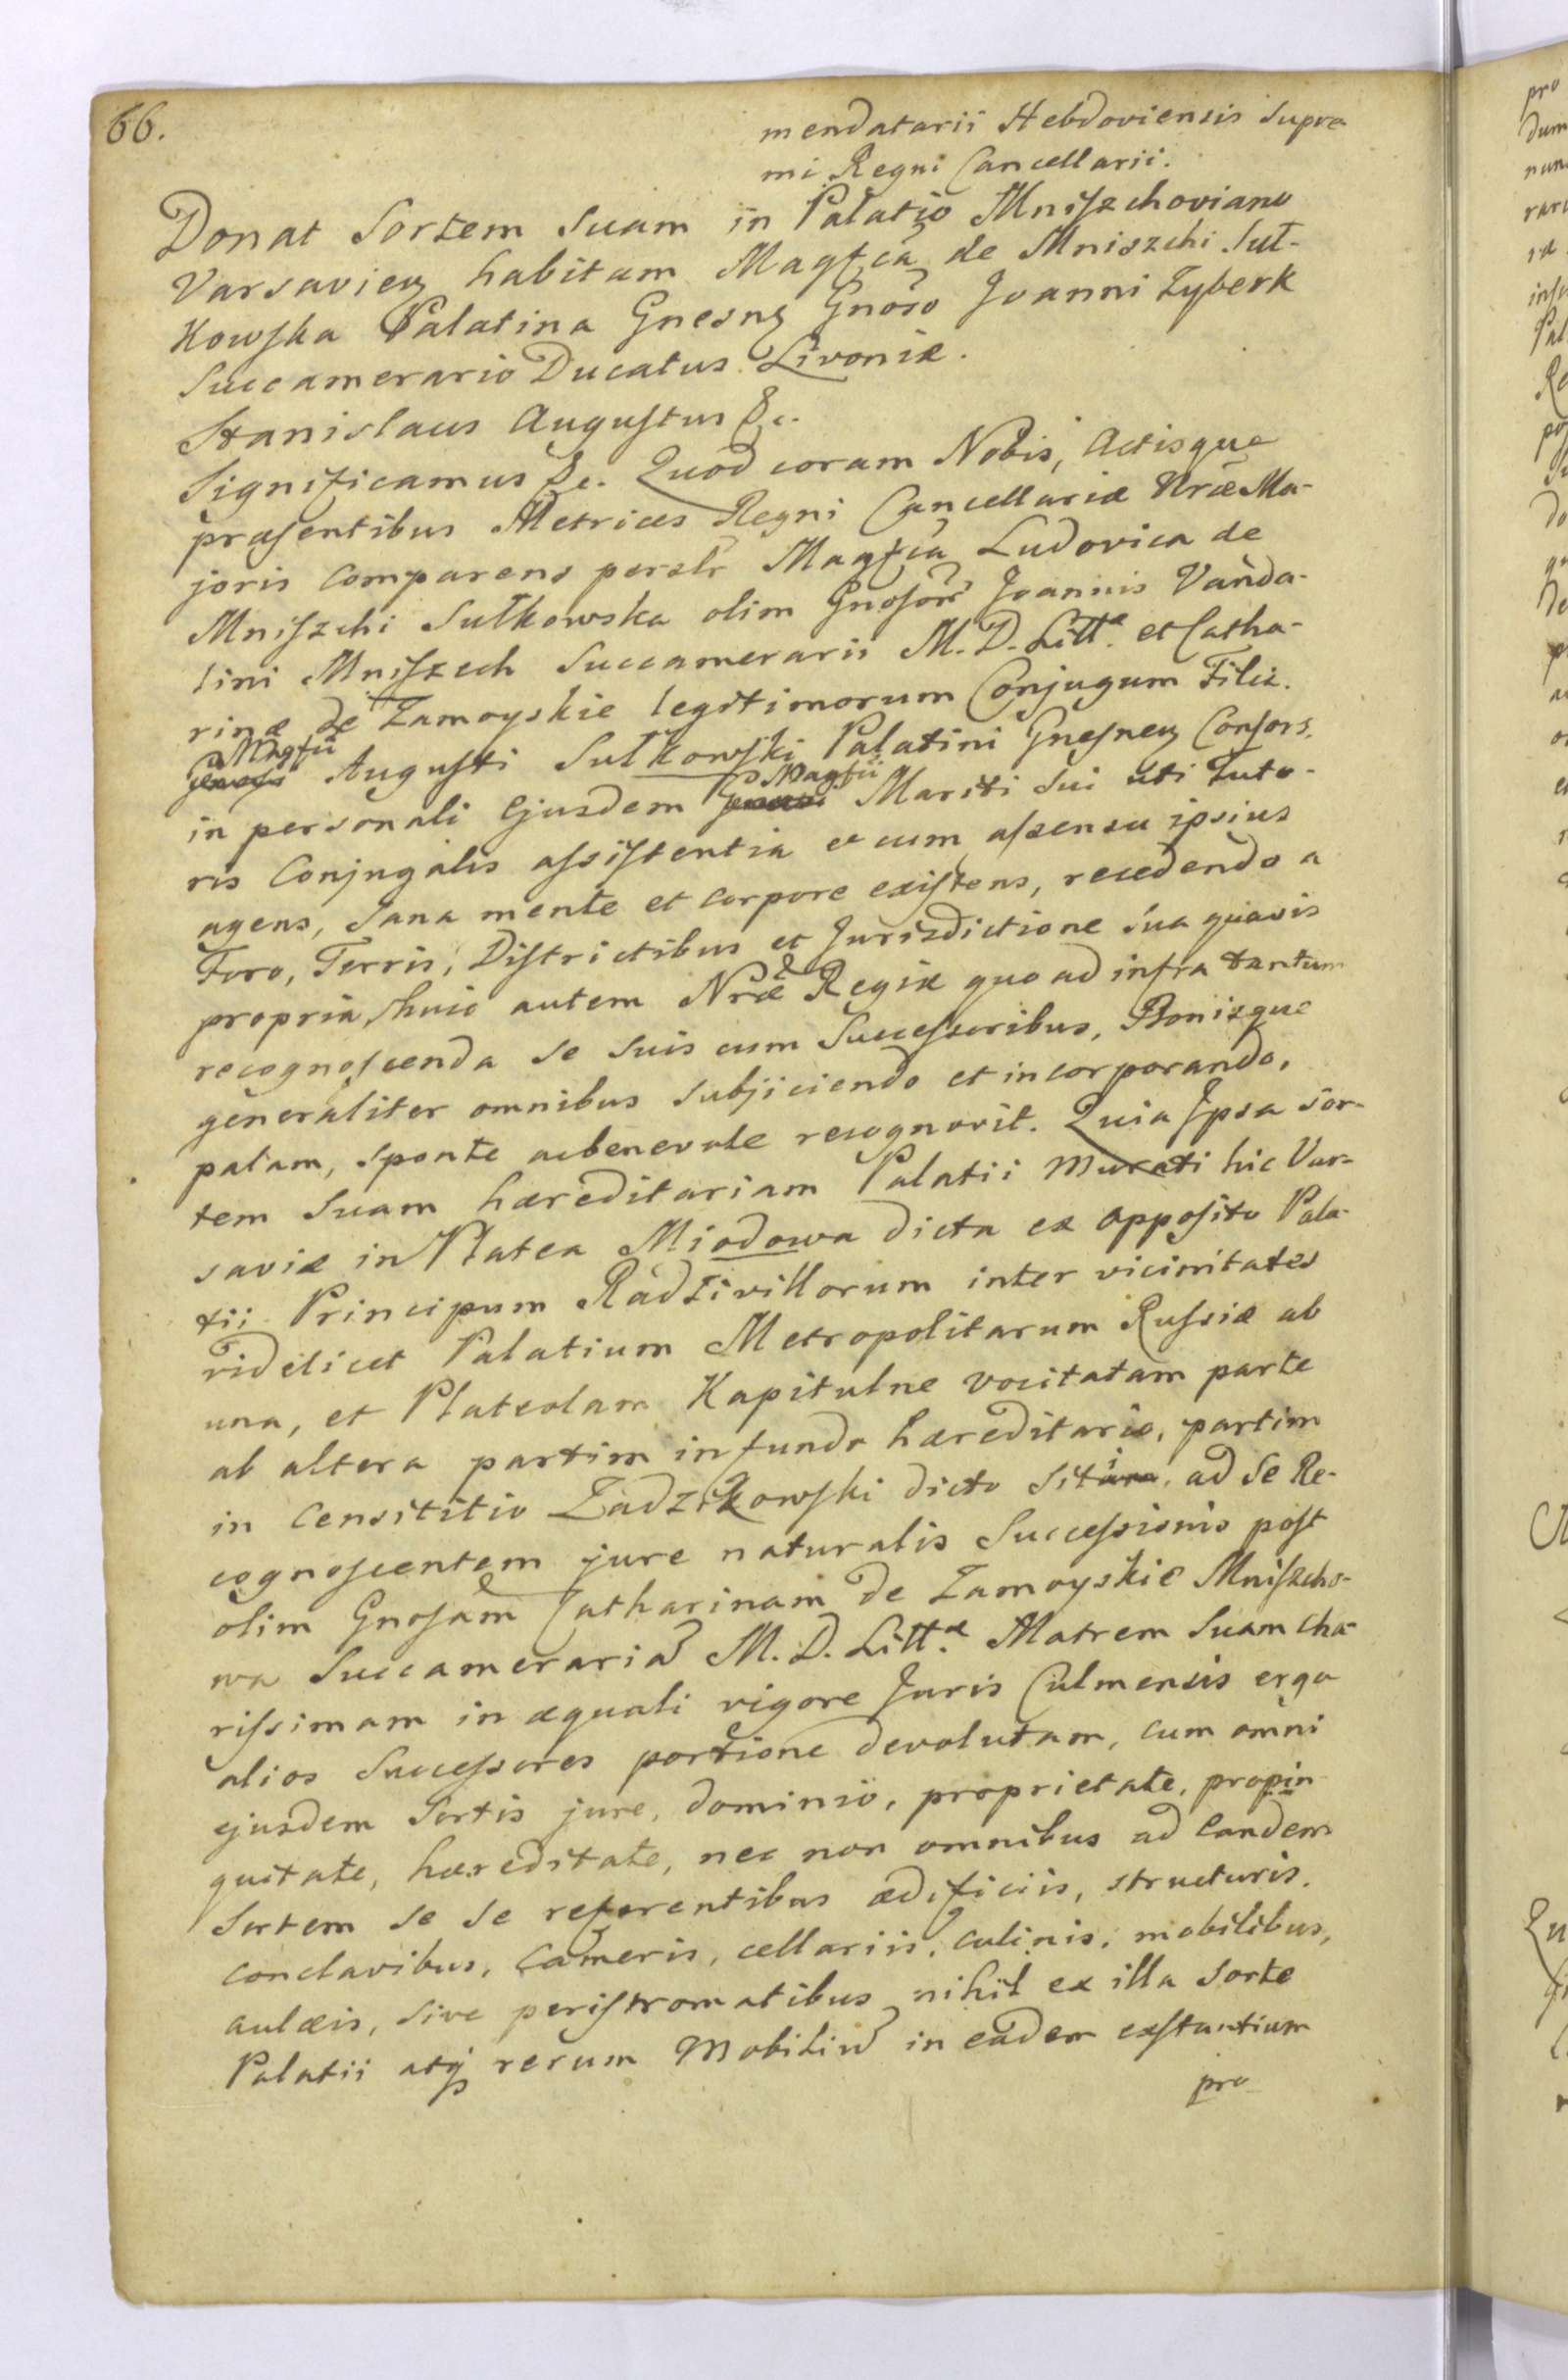 66.
mendatarii Hebdoviensis Supre-
mi Regni Cancellarii.
Donat Sortem Suam in Palatio Mniszchoviano
Varsavien habitam Magfca de Mniszchi Suł-
kowska Palatina Gnesn Gnoso Joanni Zyberk
Succamerario Ducatus Livoniæ.
Stanislaus Augustus &c.
Significamus &c. Quod coram Nobis, Actisque
præsentibus Metrices Regni Cancellariæ Nræ Ma-
joris comparens persлr Magfca Ludovica de
Mniszchi Sułkowska olim Gnosor Joannis Vanda-
lini Mniszech Succamerarii M. D. Litt.æ et Catha-
rinæ de Zamoyskie legitimorum Conjugum Filia.
Magfii Augusti Sułkowski Palatini Gnesnen Consors,
in personali Ejusdem Magfii Mariti Sui uti Tuto-
ris Conjugalis assistentia et cum assensu ipsius
agens, Sana mente et corpore existens, recedendo a
Foro, Terris, Districtibus et Jurisdictione sua quavis
propria, huic autem Nræ Regiæ quo ad infra tantum
recognoscenda se suis cum Successoribus, Bonisque
generaliter omnibus Subjiciendo et incorporando,
palam, sponte ac benevole recognovit. Quia Ipsa Sor-
tem Suam hæreditariam Palatii Murati hic Var-
saviæ in Platea Miodowa dicta ex opposito Pala-
tii Principum Radzivillorum inter vicinitates
videlicet Palatium Metropolitarum Russiæ ab
una, et Plateolam Kapitulne vocitatam parte
ab altera partim in fundo hæreditario, partim
in Censititio Zadzikowski dicto Siti, ad Se Re-
cognoscentem jure naturalis Successionis post
olim Gnosam Catharinam de Zamoyskie Mniszcho-
wa Succamerariã M. D. Litt.æ Matrem Suam cha-
rissimam in æquali vigore Juris Culmensis erga
alios Successores portione devolutam, cum omni
ejusdem Sortis jure, dominio, proprietate, propin-
quitate, hæreditate, nec non omnibus ad eandem
Sortem se se referentibus ædificiis, structuris,
conclavibus, Cameris, cellariis, culinis, mobilibus,
aulæis, sive peristromatibus nihil ex illa Sorte
Palatii atq rerum Mobiliũ in eadem exstantium
pro